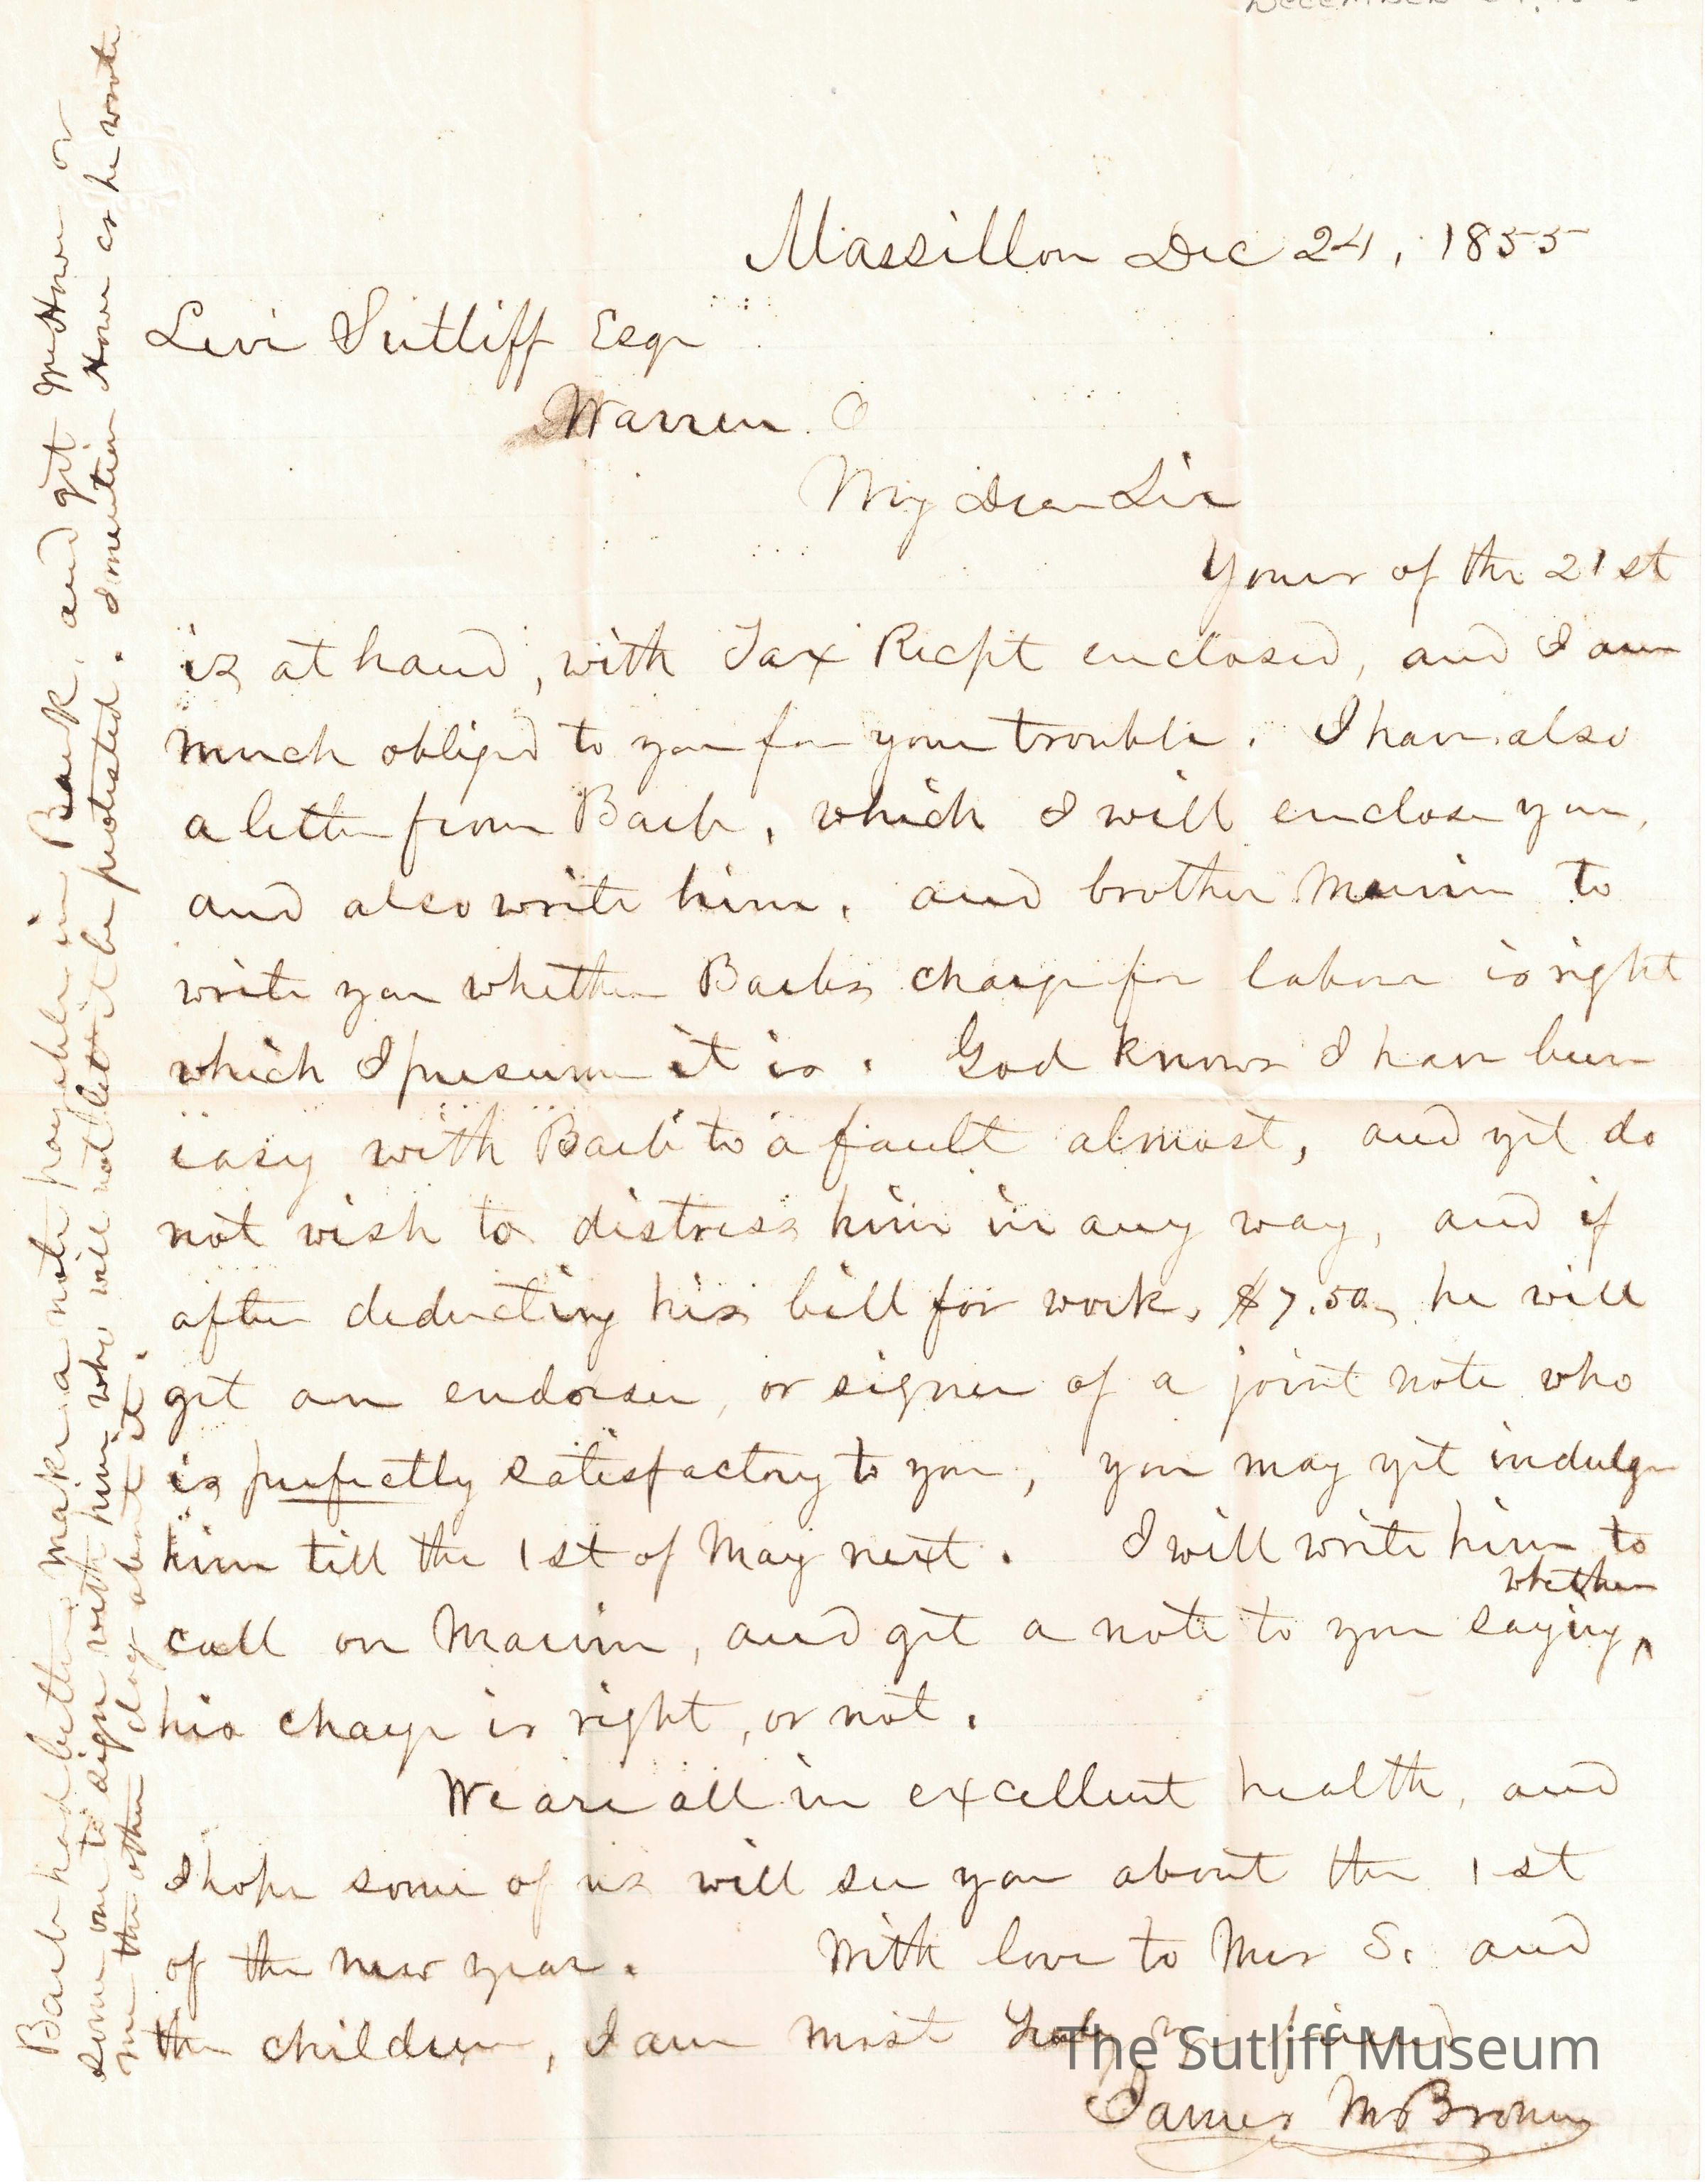 Massillon Dec 24, 1855
Levi Sutliff Esqr
Warren O
My Dear Sir
Yours of the 21st
is at hand, with Tax Recpt enclosed, and I am
much obliged to you for your trouble. I have also
a letter from Barb, which I will enclose you,
and also write him, and brother Marvin to
write you whether Barbs charge for labour is right
which I presume it is. God knows I have been
easy with Barb to a fault almost, and yet do
not wish to distress him in any way, and if
after deducting his bill for work, $7.50, he will
get an endorser, or signer of a joint note who
is perfectly satisfactory to you, you may yet indulge
him till the 1st of May next. I will write him to
call on Marvin, and get a note to you saying, whether
his charge is right, or not.
We are all in excellent health, and
I hope some of us will see you about the 1st
of the new year. With love to Mrs S. and
the children, I am most truly yr friend
James M Brown
Barb had better make a note payable in Bank, and get Mr Howe or
some one to sign with him who will not let it be protested. I mention Howe as he wrote
me the other day about it.
The Sutliff Museum